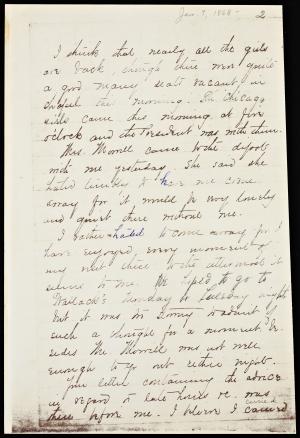 Jan. 7, 1868 - 2
I think that nearly all the girls
are back, though there were quite
a good many seats vacant in
chapel this morning. The Chicago
girls came this morning at five
o'clock and the President was with them.
Mrs. Morrell came to the depot
with me yesterday. She said she
hated terribly to have me come
away for it would be very lonely
and quiet there without me.
I rather hated to come away for I
have enjoyed every moment of
my visit there to the utmost it
seems to me. We hoped to go to
Wallack's Monday or Tuesday night
but it was too stormy to admit of
such a thought for a moment. Be-
sides Mrs. Morrell was not well
enough to go out either night.
Your letter containing the advice
in regard to late hours &c. was
there before me. I believe I carried